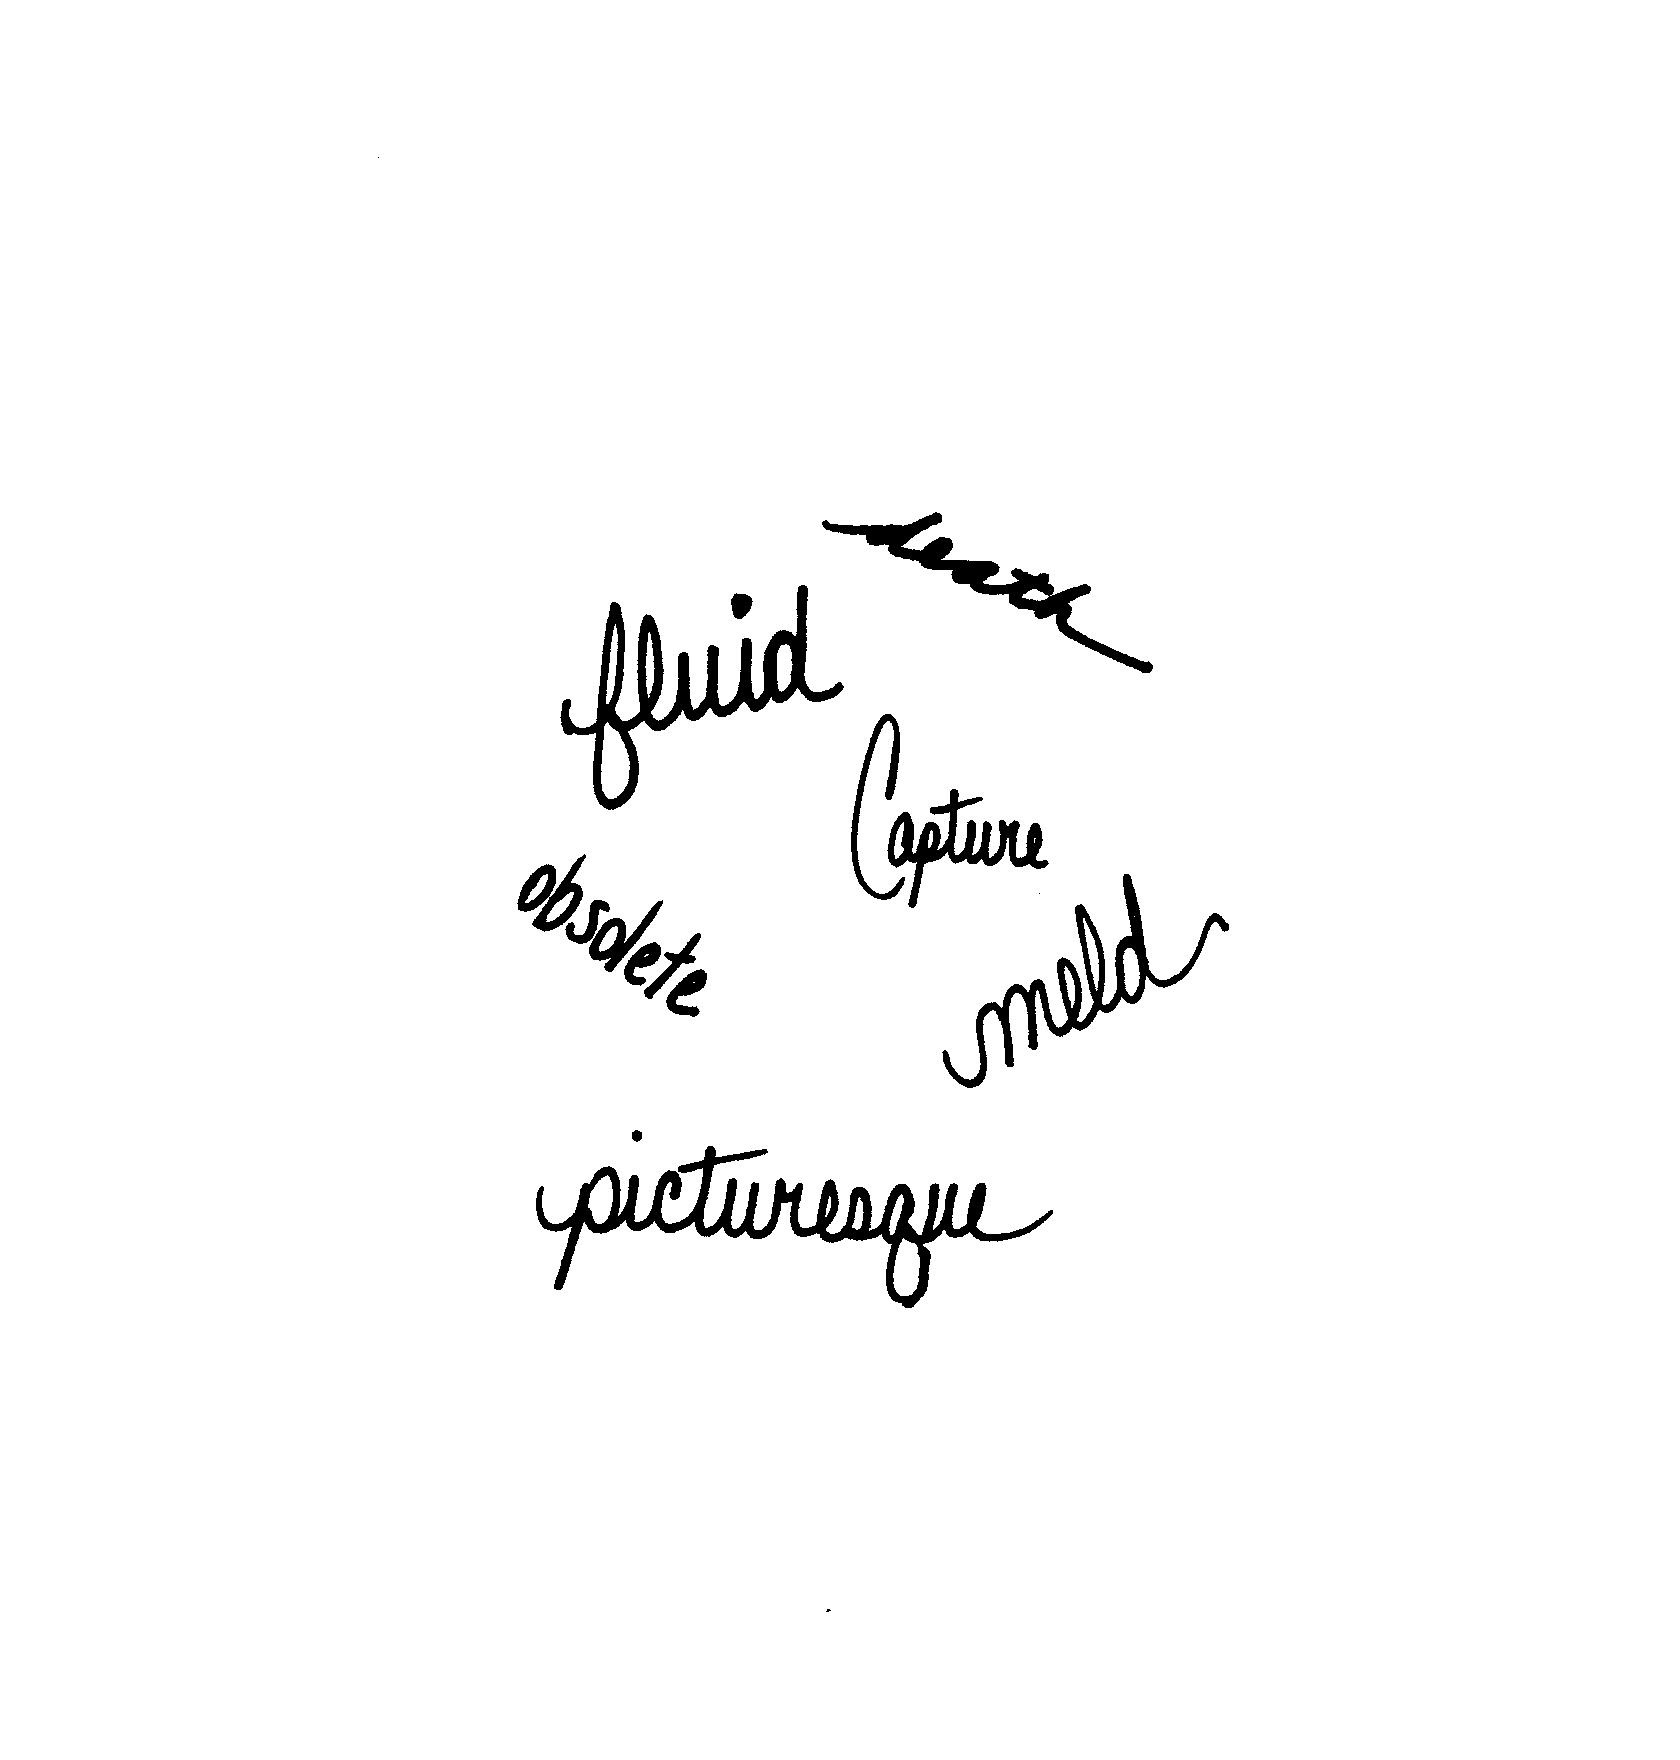 death
fluid
Capture
obsolete
meld
picturesque